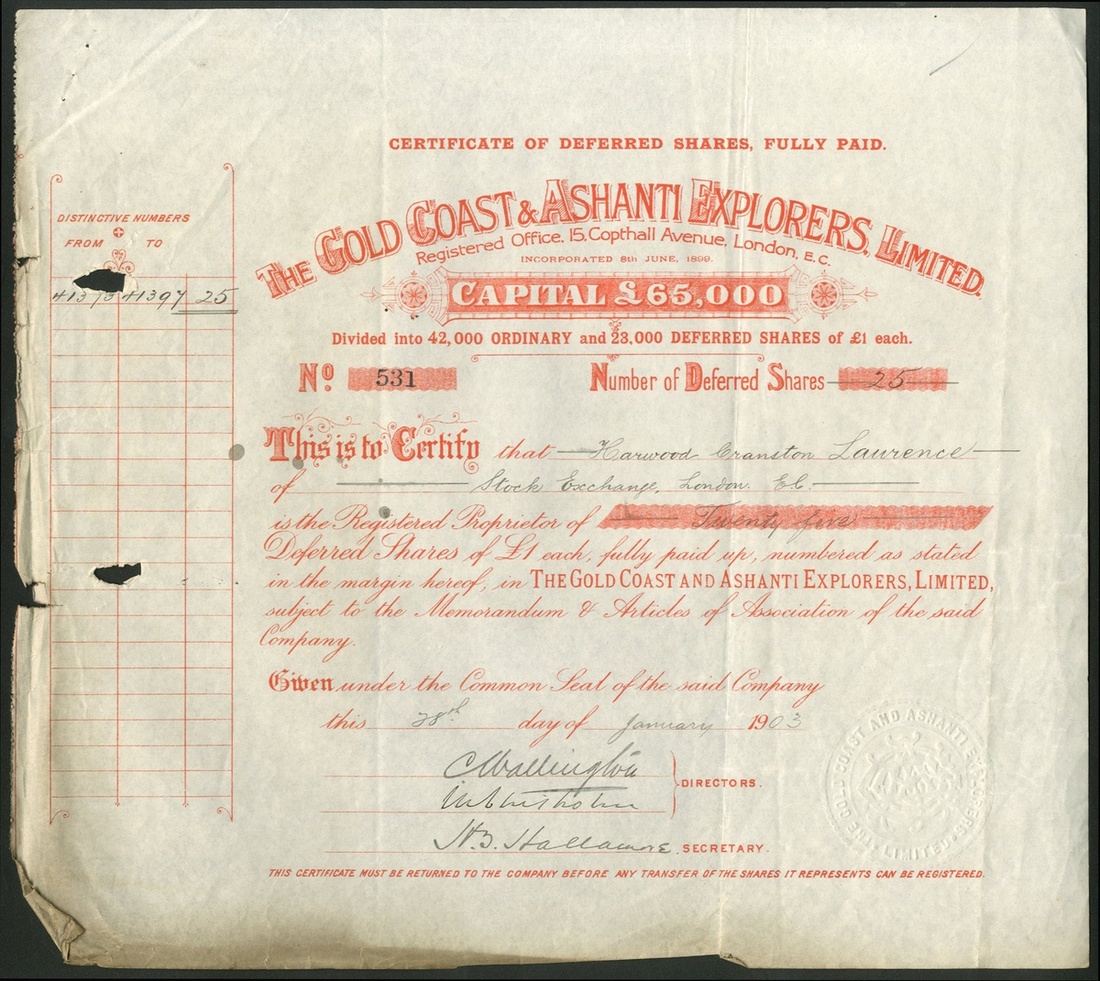 CERTIFICATE OF DEFERRED SHARES, FULLY PAID.
THE GOLD COAST & ASHANTI EXPLORERS, LIMITED.
Registered Office. 15, Copthall Avenue, London, E.C.
INCORPORATED 8th JUNE, 1899.
CAPITAL £65,000
Divided into 42,000 ORDINARY and 23,000 DEFERRED SHARES of £1 each.
No 531 Number of Deferred Shares 25
DISTINCTIVE NUMBERS
FROM TO
41373 41397 25
This is to Certify that Harwood Cranston Laurence
of Stock Exchange, London. EC.
is the Registered Proprietor of Twenty five
Deferred Shares of £1 each, fully paid up, numbered as stated
in the margin hereof, in THE GOLD COAST AND ASHANTI EXPLORERS, LIMITED,
subject to the Memorandum & Articles of Association of the said
Company.
Given under the Common Seal of the said Company
this 28th day of January 1903
C Wallington
DIRECTORS.
W Chisholm
H. B. Hallamore. SECRETARY.
THE GOLD COAST AND ASHANTI EXPLORERS LIMITED
THIS CERTIFICATE MUST BE RETURNED TO THE COMPANY BEFORE ANY TRANSFER OF THE SHARES IT REPRESENTS CAN BE REGISTERED.